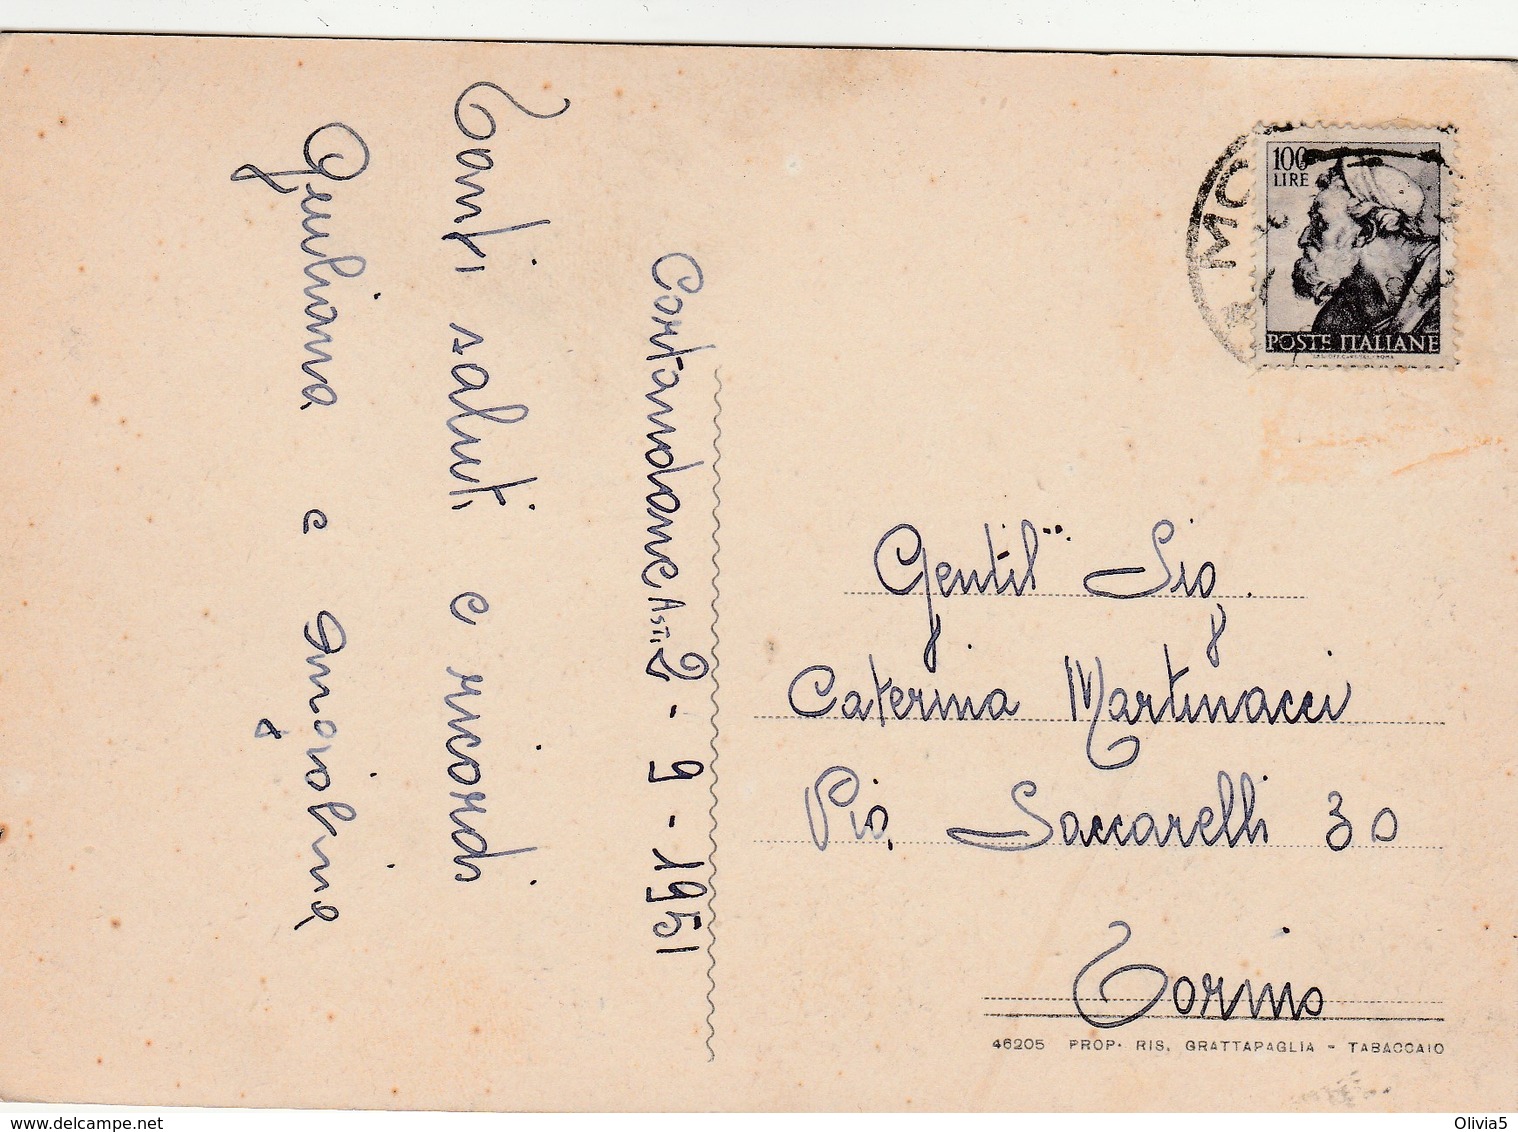 Tanti saluti e ricordi
Giuliana e
Cortandone ASTI 2-9-1951
MO
100
LIRE
POSTE ITALIANE
Gentil.... Sig.
Caterina Martinacci
Via Saccarelli 30
Torino
46205 PROP. RIS. GRATTAPAGLIA - TABACCAIO
www.delcampe.net
Olivia5